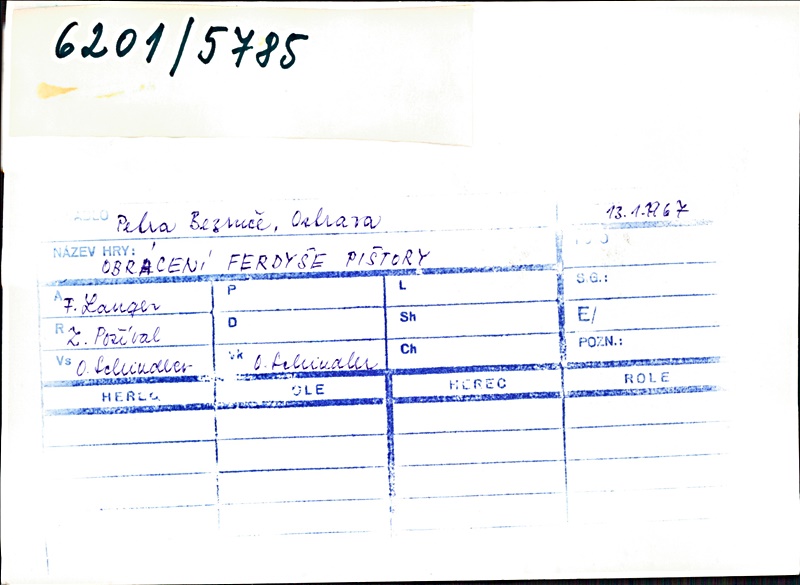 6201/5785
Petra Bezruče, Ostrava 13.1.1967
NÁZEV HRY: OBRÁCENÍ FERDYŠE PIŠTORY
A F. Langer P L S.G.:
R Z. Pošíval D Sh E/
Vs O. Schindler Vk O. Schindler Ch POZN.:
HEREC OLE HEREC ROLE